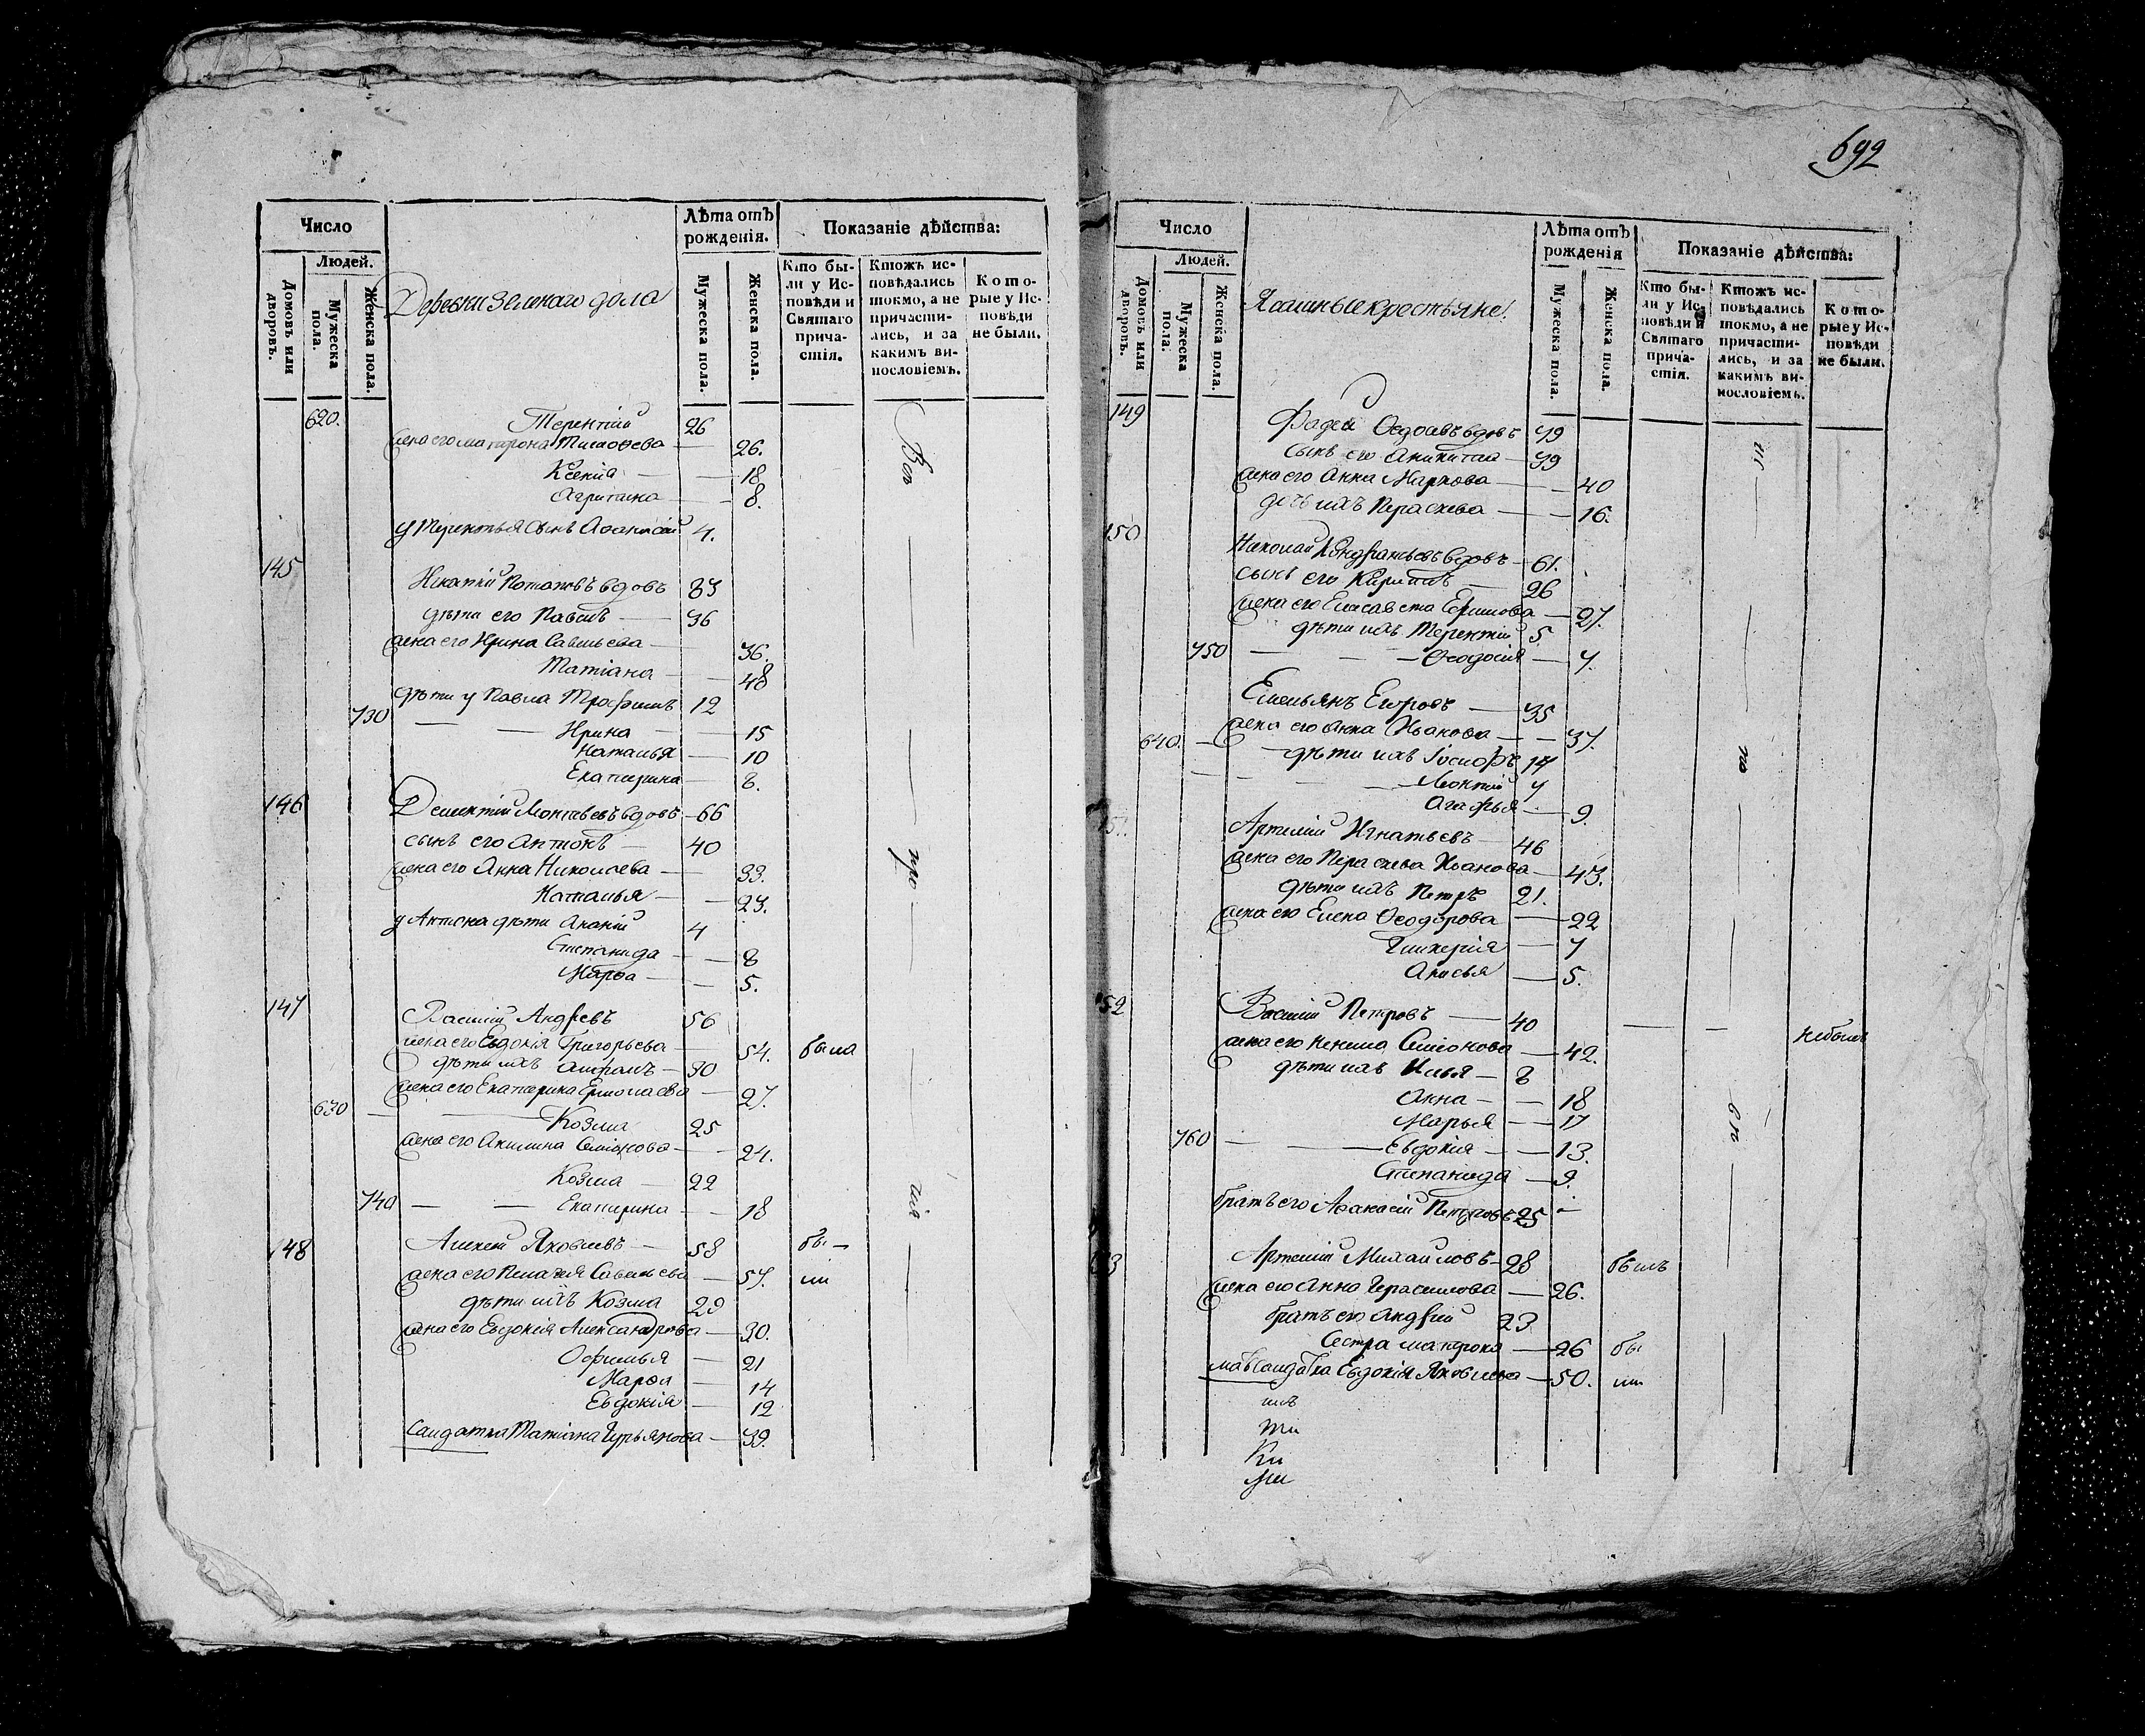 692
Число
Людей.
Домовъ или дворовъ.
Мужеска пола.
Женска пола.
Деревни Зеленаго дола
Лѣта отъ рожденія.
Мужеска пола.
Женска пола.
Показаніе дѣйства:
Кто бы-
ли у Ис-
повѣди и
Святаго
прича-
стія.
Ктожъ ис-
повѣдались
токмо, а не
причасти-
лись, и за
какимъ ви-
нословіемъ.
Кото-
рые у Ис-
повѣди
не были.
620. Терентій 26
жена его Матрона Тимофеева 26.
Ксенія 18
Агрипина 8.
у Терентья сынъ Афанасій 4.
145
Потаповъ вдовъ 83
дѣти его Павелъ 36
жена его Ирина Савельева 36.
Татіана 48
дѣти у Павла Трофимъ 12
730 Ирина 15
Наталья 10
Екатерина 8.
146 Дементій Леонтьевъ вдовъ 66
сынъ его Антонъ 40
жена его Анна Николаева 33.
Наталья 23.
у Антона дѣти Ананій 4
Степанида 8
Марфа 5.
147 Василій Андреевъ 56
жена его Евдокія Григорьева 54. была
дѣти ихъ 30
жена его Екатерина Ермолаева 27.
630 Козма 25
жена его Акилина Семіонова 24.
Козма 22
740 Екатерина 18
148 Алексей Яковлевъ 58 бы
жена его Пелагея Савельева 57. ли
дѣти ихъ Козма 29
жена его Евдокія Александрова 30.
Офимья 21
Марфа 14
Евдокія 12
Салдатка Татіана Гурьянова 39.
Число
Людей.
Домовъ или дворовъ.
Мужеска пола.
Женска пола.
Ясашные крестьяне
Лѣта отъ рожденія
Мужеска пола.
Женска пола.
Показаніе дѣйства:
Кто бы-
ли у Ис-
повѣди и
Святаго
прича-
стія.
Ктожъ ис-
повѣдались
токмо, а не
причасти-
лись, и за
какимъ ви-
нословіемъ.
Кото-
рые у Ис-
повѣди
не были.
149 Фадей вдовъ
сынъ его Аникита 39
жена его Анна Маркова 40
дочь ихъ Параскева 16.
150
Николай Кондратьевъ вдовъ 61.
сынъ его 26
жена его Елисавета Ефимова 27.
дѣти ихъ Терентій 5
750 Феодосія
Емельянъ Егоровъ 35
жена его Анна Иванова 37.
640. дѣти ихъ Іосифъ 14
Леонтій
Агафья 9
Артемій Игнатьевъ 46
жена его Параскева Иванова 43.
дѣти ихъ Петръ 21.
жена его Елена Феодорова 22
Гликерія 7
Анисья 5.
152 Василій Петровъ 40 небылъ
жена его Семіонова 42.
дѣти ихъ Илья 8
Анна 18
Марья 17
760 Евдокія 13.
Степанида 9.
братъ его Афанасій Петровъ 25
Артемій Михайловъ 28 былъ
жена его Анна Герасимова 26.
братъ его Андрей 23
Сестра Матрона 26 бы
мать Салдатка Евдокія Яковлева 50. ли